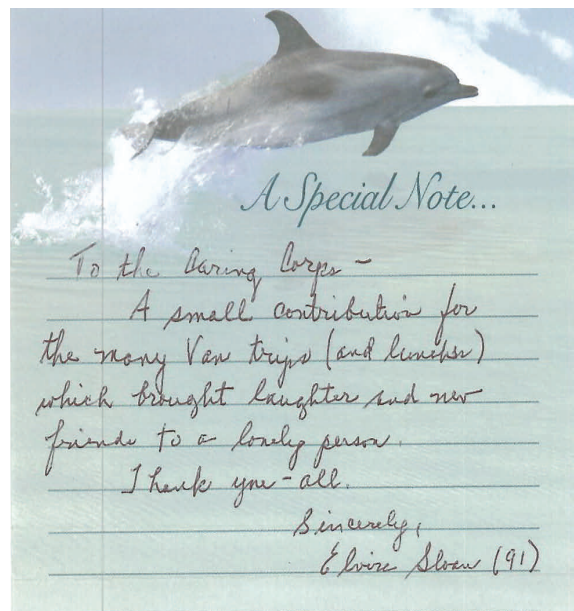 A Special Note...
To the Caring Corps -
A small contribution for
the many Van trips (and lunches)
which brought laughter and new
friends to a lonely person.
Thank you-all.
Sincerely,
Sloan (91)